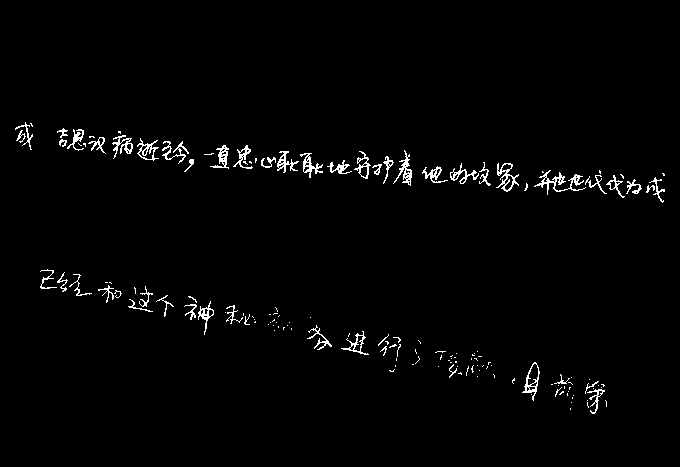 成吉思汉病逝至今，一直忠心耿耿地守护着他的坟冢，并世世代代为成
已经和这个神秘部落进行了接触，目前第